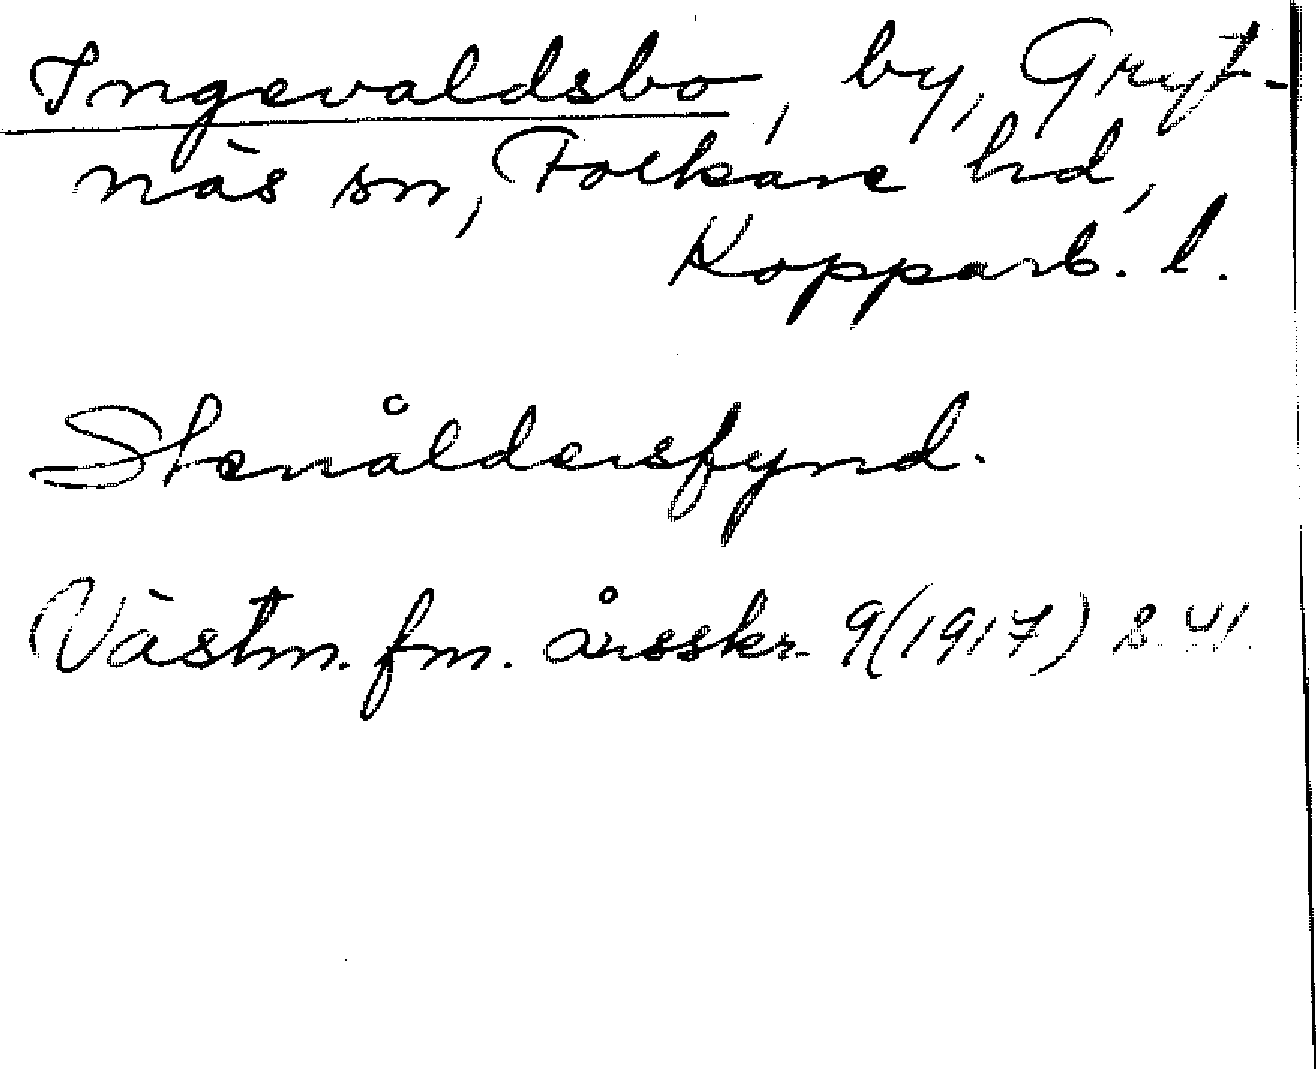 Ingevaldsbo, by, Gryt-
näs sn, Folkare hd,
Kopparb. l.
Stenåldersfynd.
Västm. fm. årsskr. 9(1917) s. 41.